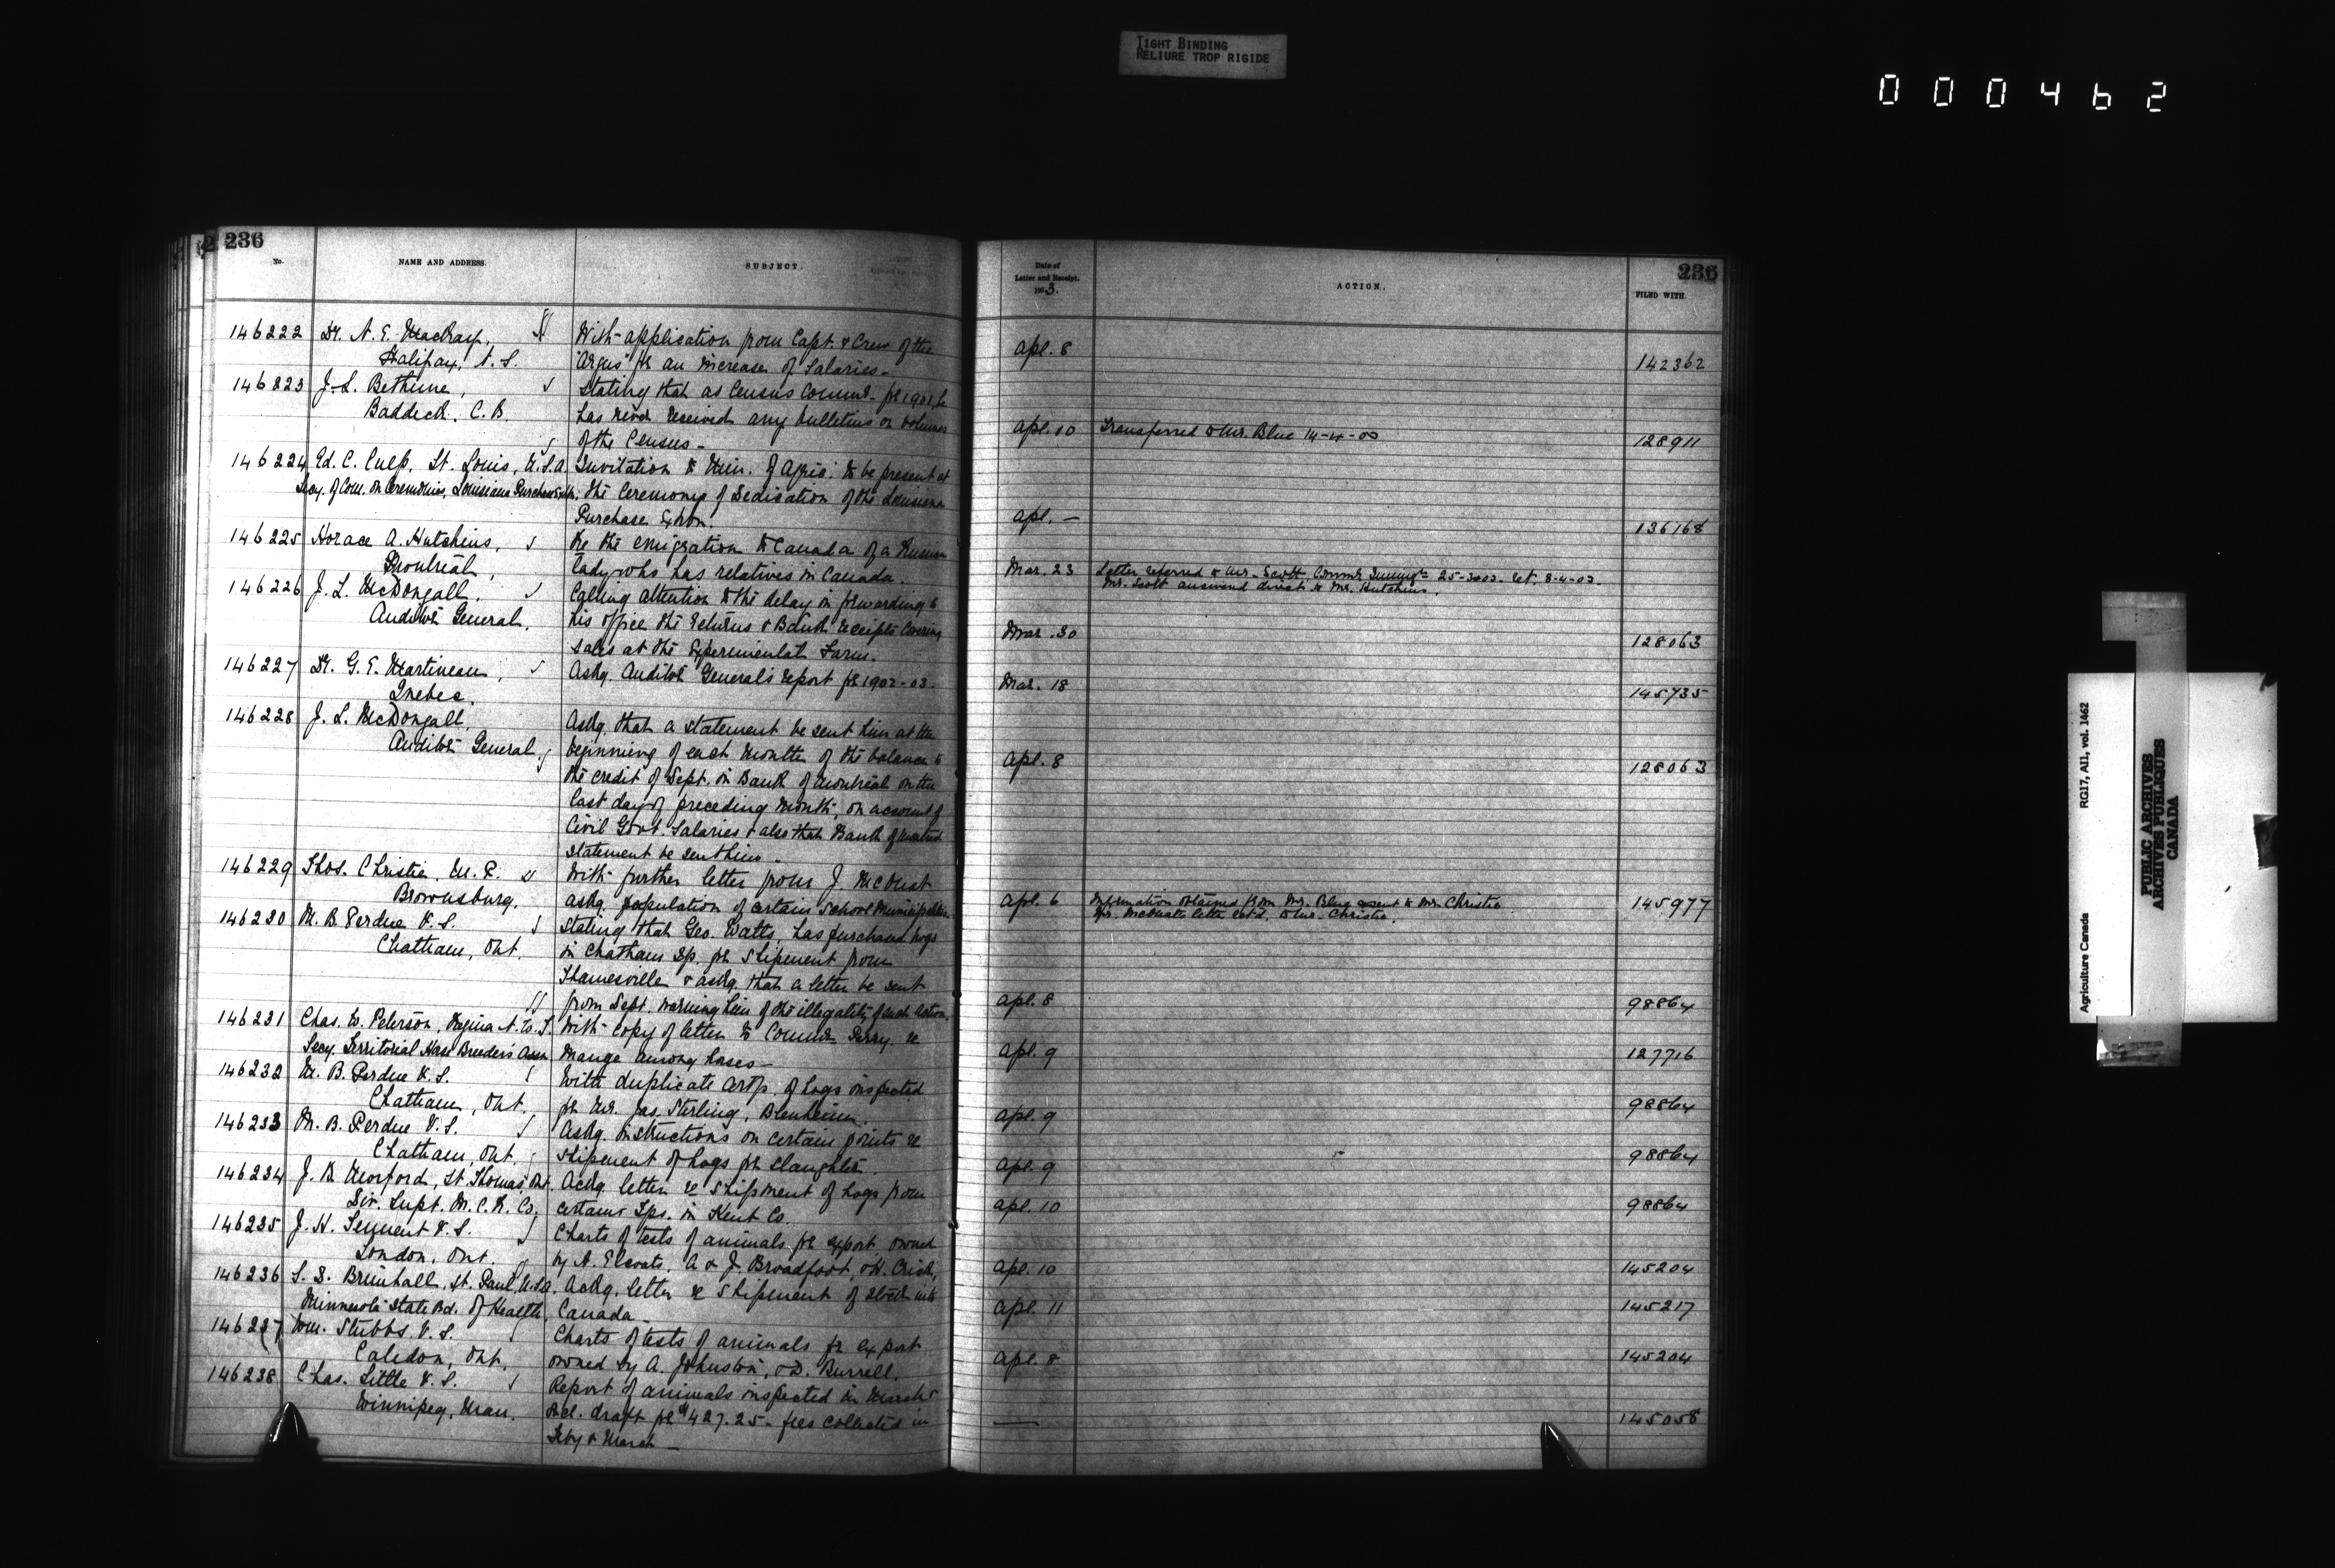 TIGHT BINDING
RELIURE TROP RIGIDE
000462
236
No.
NAME AND ADDRESS.
SUBJECT.
146222 Dr. N. E. MacKay, With application from Capt. & Crew of the
Halifax, N. S. "Argus" for an increase of Salaries -
146223 J. L. Bethune, Stating that as Census Commr. for 1901, he
Baddeck, C. B. has never received any bulletins or volumes
of the Census -
146224 Ed. C. Culp, St. Louis, U.S.A. Invitation to Min. of Agric. to be present at
Secy. of Com. on Ceremonies, Louisiana Purchase the Ceremony of Dedication of the Louisiana
Purchase Exhbn.
146225 Horace A. Hutchins, Re the emigration to Canada of a Russian
Montreal, lady who has relatives in Canada.
146226 J. L. McDougall, Calling attention to the delay in forwarding to
Auditor General, his office the returns & Bank receipts covering
sales at the Experimental Farm.
146227 Dr. G. E. Martineau, Askg. Auditor General's report for 1902-03.
Quebec.
146228 J. L. McDougall, Askg. that a statement be sent him at the
Auditor General, beginning of each month of the balance to
the credit of Dept. in Bank of Montreal on the
last day of preceding month, on account of
Civil Govt. Salaries & also that Bank of Montreal
statement be sent him -
146229 Thos. Christie, M. P. With further letter from J. McOuat
Brownsburg. askg. population of certain School Municipalities.
146230 M. B. Perdue V. S. Stating that Geo. Watts, has purchased hogs
Chatham, Ont. in Chatham Tp. for shipment from
Thamesville & askg. that a letter be sent
from Dept. warning him of the illegality of such action.
146231 Chas. W. Peterson, Regina N. W. T. With copy of letter to Commr. Perry re
Secy. Territorial Horse Breeders Assn. Mange among horses -
146232 M. B. Perdue V. S. With duplicate certf. of hogs inspected
Chatham, Ont. for Mr. Jas. Stirling, Blenheim.
146233 M. B. Perdue V. S. Askg. instructions on certain points re
Chatham, Ont. shipment of hogs for slaughter.
146234 J. B. Morford, St Thomas Ont. Ackg. letter re shipment of hogs from
Div. Supt. M. C. R. Co. certain Tps. in Kent Co.
146235 J. H. Tennent V. S. Charts of tests of animals for export owned
London, Ont. by A. Elcoate, A & J. Broadfoot, & H. Crich,
146236 S. D. Brimhall, St. Paul, U.S.A. Ackg. letter re shipment of stock into
Minnesota State Bd. of Health, Canada -
146237 Wm. Stubbs V. S. Charts of tests of animals for export
Caledon, Ont. owned by A. Johnston, & D. Burrell.
146238 Chas. Little V. S. Report of animals inspected in March &
Winnipeg, Man. encl. draft for $427.25 - fees collected in
Feby & March -
236
Date of
Letter and Receipt.
1903.
ACTION.
FILED WITH
Apl. 8 142362
Apl. 10 Transferred to Mr. Blue 14-4-03 128911
Apl. - 136168
Mar. 23 Letter referred to Mr. Scott Commr. Immig'n 25-3-03. ret. 8-4-03.
Mr. Scott answered direct to Mr. Hutchins.
Mar. 30 128063
Mar. 18 145735
Apl. 8 128063
Apl. 6 Information obtained from Mr. Blue & sent to Mr. Christie 145977
Mr. McOuats letter retd. to Mr. Christie.
Apl. 8 98864
Apl. 9 127716
Apl. 9 98864
Apl. 9 98864
Apl. 10 98864
Apl. 10 145204
Apl. 11 145217
Apl. 8 145204
— 145058
Agriculture Canada RG17, AII, vol. 1462
PUBLIC ARCHIVES
ARCHIVES PUBLIQUES
CANADA